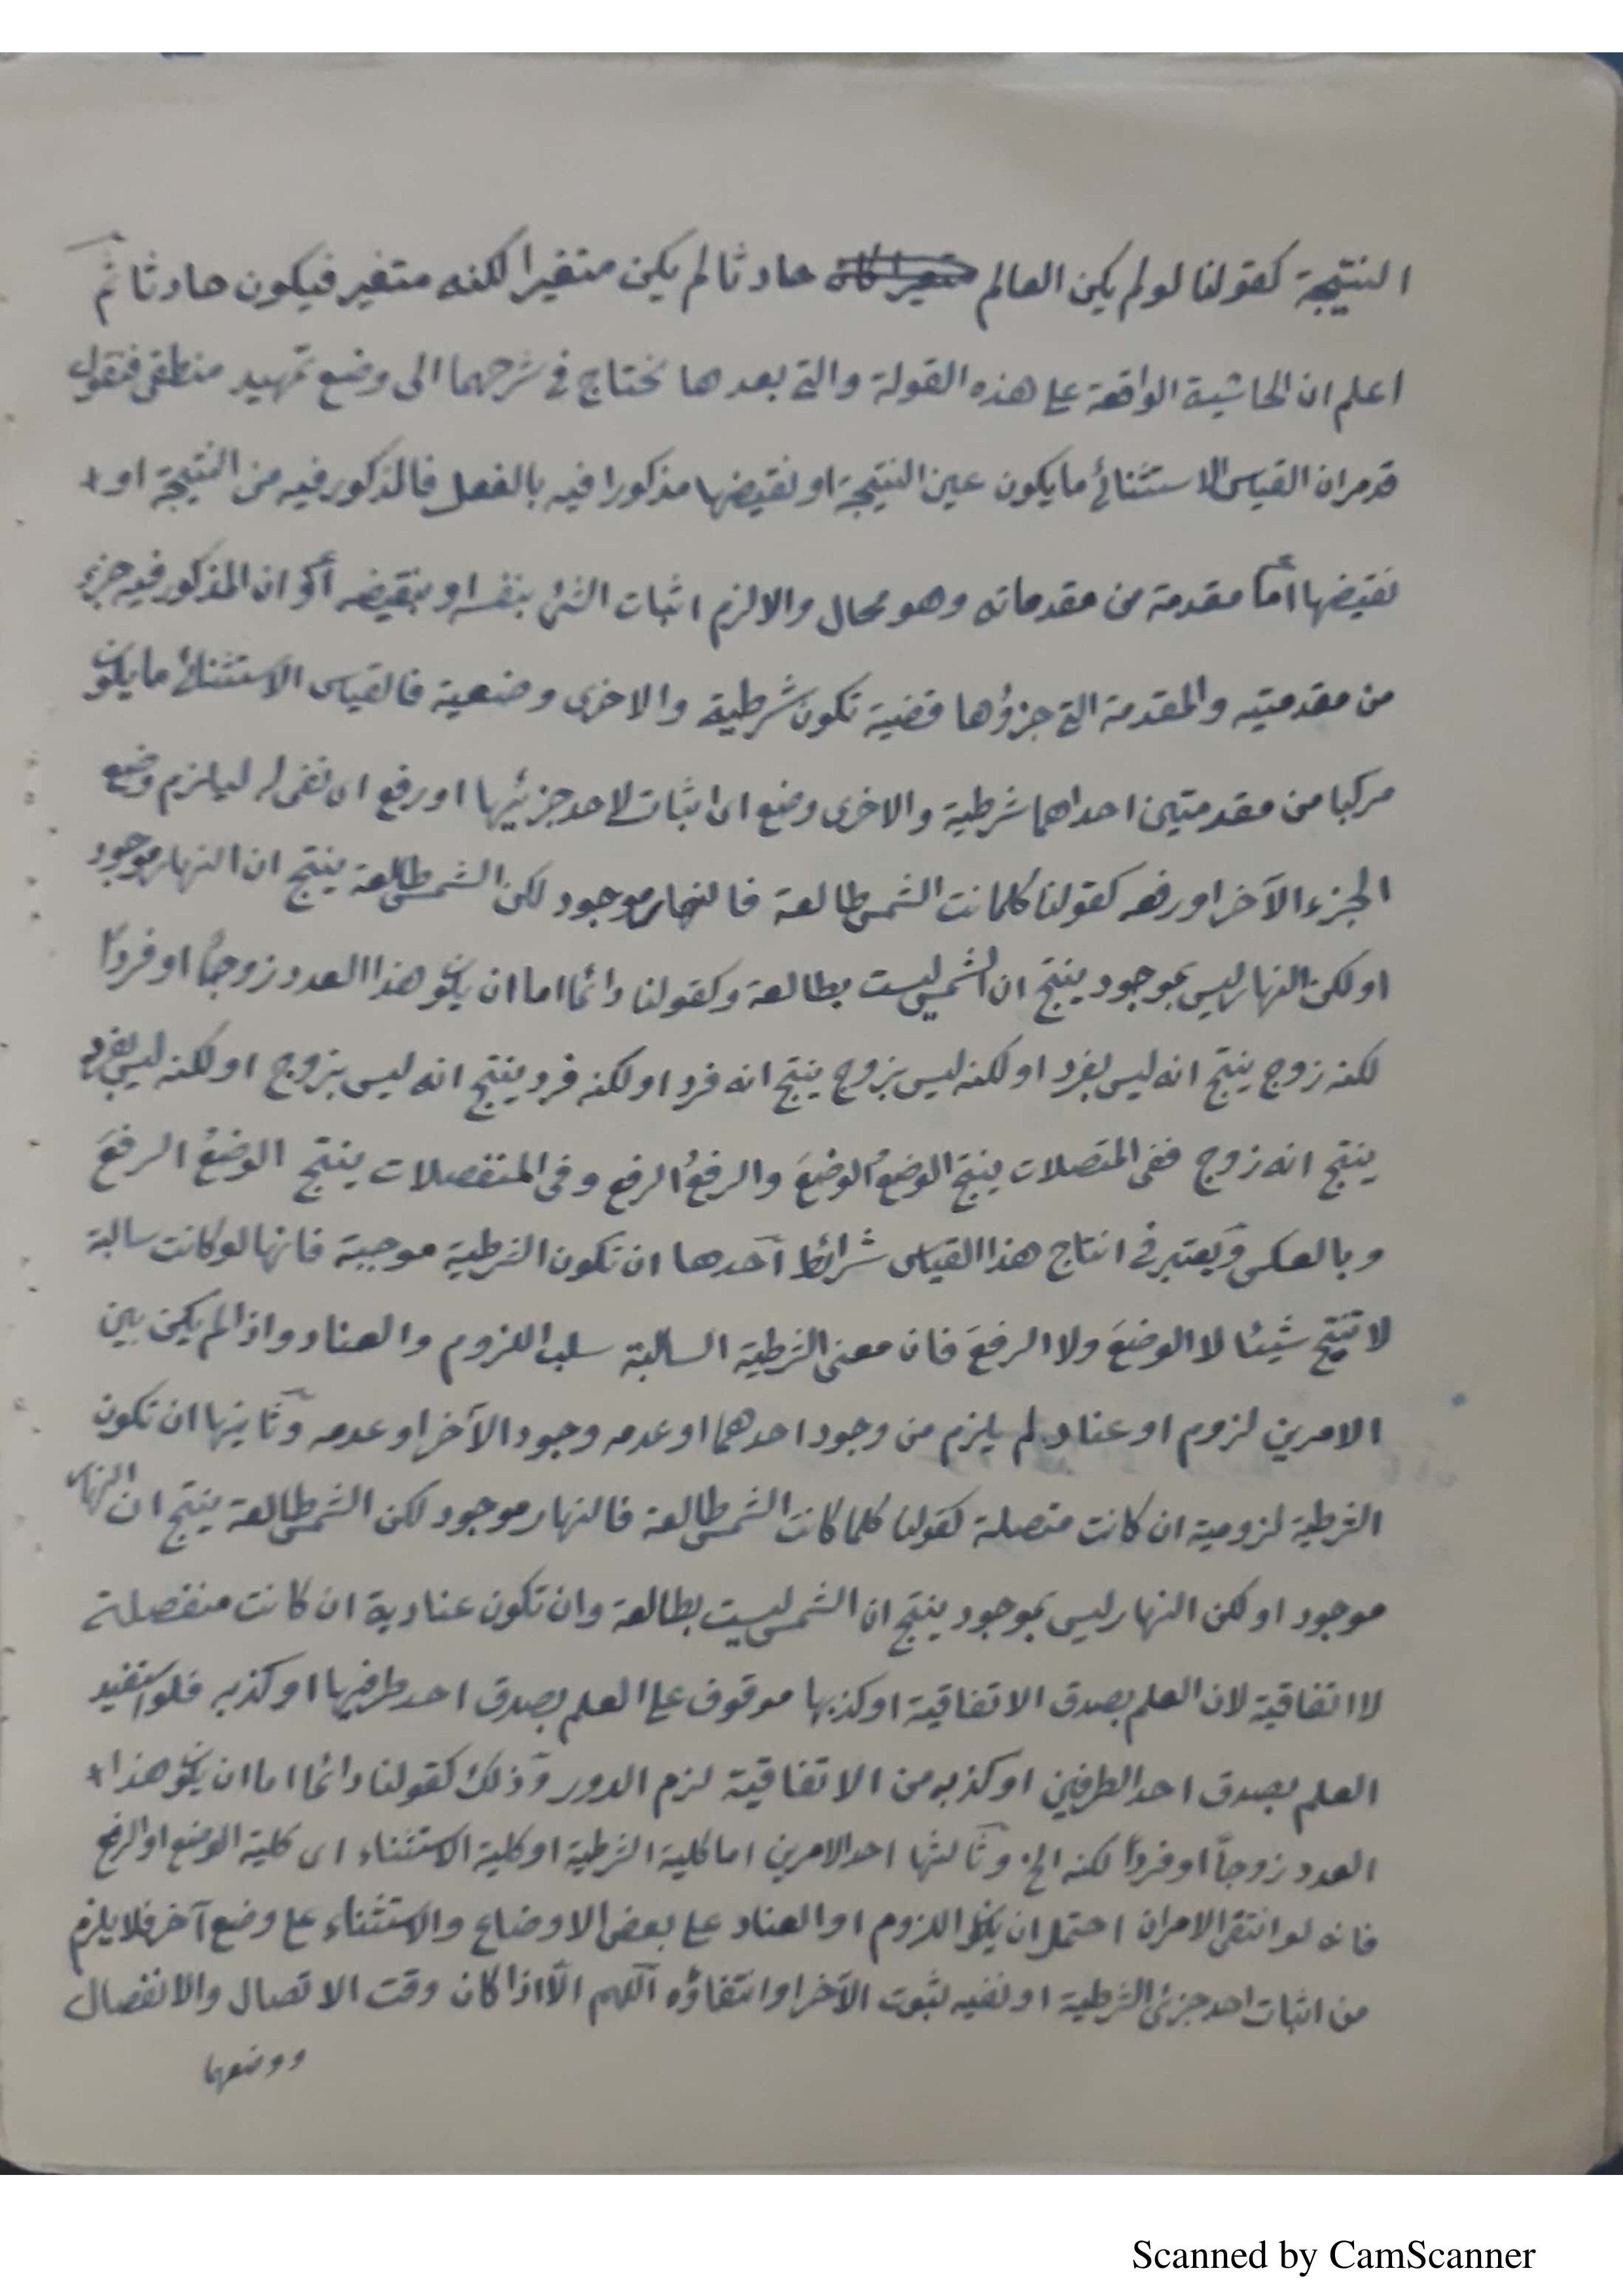 النتيجة كقولنا لو لم يكن العالم حادثا لم يكن متغيرا لكنه متغير فيكون حادثا ثم
اعلم ان الحاشية الواقعة على هذه القولة والتى بعدها تحتاج فى شرحهما الى وضع تمهيد منطقى فنقول
قد مر ان القياس الاستثنائى ما يكون عين النتيجة او نقيضها مذكورا فيه بالفعل فالمذكور فيه من النتيجة او
نقيضها أما مقدمة من مقدماته وهو محال والا لزم اثبات الشئ بنفسه او بنقيضه أو ان المذكور فيه جزء
من مقدمتيه والمقدمة التى جزؤها قضية تكون شرطية والاخرى وضعية فالقياس الاستثنائى ما يكون
مركبا من مقدمتين احداهما شرطية والاخرى وضع اى اثبات لاحد جزئيها او رفع اى نفى له ليلزم وضع
الجزء الآخر او رفعه كقولنا كلما كانت الشمس طالعة فالنهار موجود لكن الشمس طالعة ينتج ان النهار موجود
او لكن النهار ليس بموجود ينتج ان الشمس ليست بطالعة وكقولنا دائما اما ان يكون هذا العدد زوجا او فردا
لكنه زوج ينتج انه ليس بفرد او لكنه ليس بزوج ينتج انه فرد او لكنه فرد ينتج انه ليس بزوج او لكنه ليس بفرد
ينتج انه زوج ففى المتصلات ينتج الوضعُ الوضعَ والرفعُ الرفع وفى المنفصلات ينتج الوضعُ الرفعَ
وبالعكس ويعتبر فى انتاج هذا القياس شرائط احدها ان تكون الشرطية موجبة فانها لو كانت سالبة
لا تنتج شيئا لا الوضعَ ولا الرفعَ فان معنى الشرطية السالبة سلب اللزوم والعناد واذا لم يكن بين
الامرين لزوم او عناد لم يلزم من وجود احدهما او عدمه وجود الآخر او عدمه وثانيها ان تكون
الشرطية لزومية ان كانت متصلة كقولنا كلما كانت الشمس طالعة فالنهار موجود لكن الشمس طالعة ينتج ان النهار
موجود او لكن النهار ليس بموجود ينتج ان الشمس ليست بطالعة وان تكون عنادية ان كانت منفصلة
لا اتفاقية لان العلم بصدق الاتفاقية او كذبها موقوف على العلم بصدق احد طرفيها او كذبه فلو استفيد
العلم بصدق احد الطرفين او كذبه من الاتفاقية لزم الدور وذلك كقولنا دائما اما ان يكون هذا
العدد زوجاً او فرداً لكنه الخ وثالثها احد الامرين اما كلية الشرطية او كلية الاستثناء اى كلية الوضع او الرفع
فانه لو انتفى الامران احتمل ان يكون اللزوم او العناد على بعض الاوضاع والاستثناء على وضع آخر فلا يلزم
من اثبات احد جزئى الشرطية او نفيه ثبوت الآخر او انتفاؤه اللهم الّا اذا كان وقت الاتصال والانفصال
ووضعهما
Scanned by CamScanner